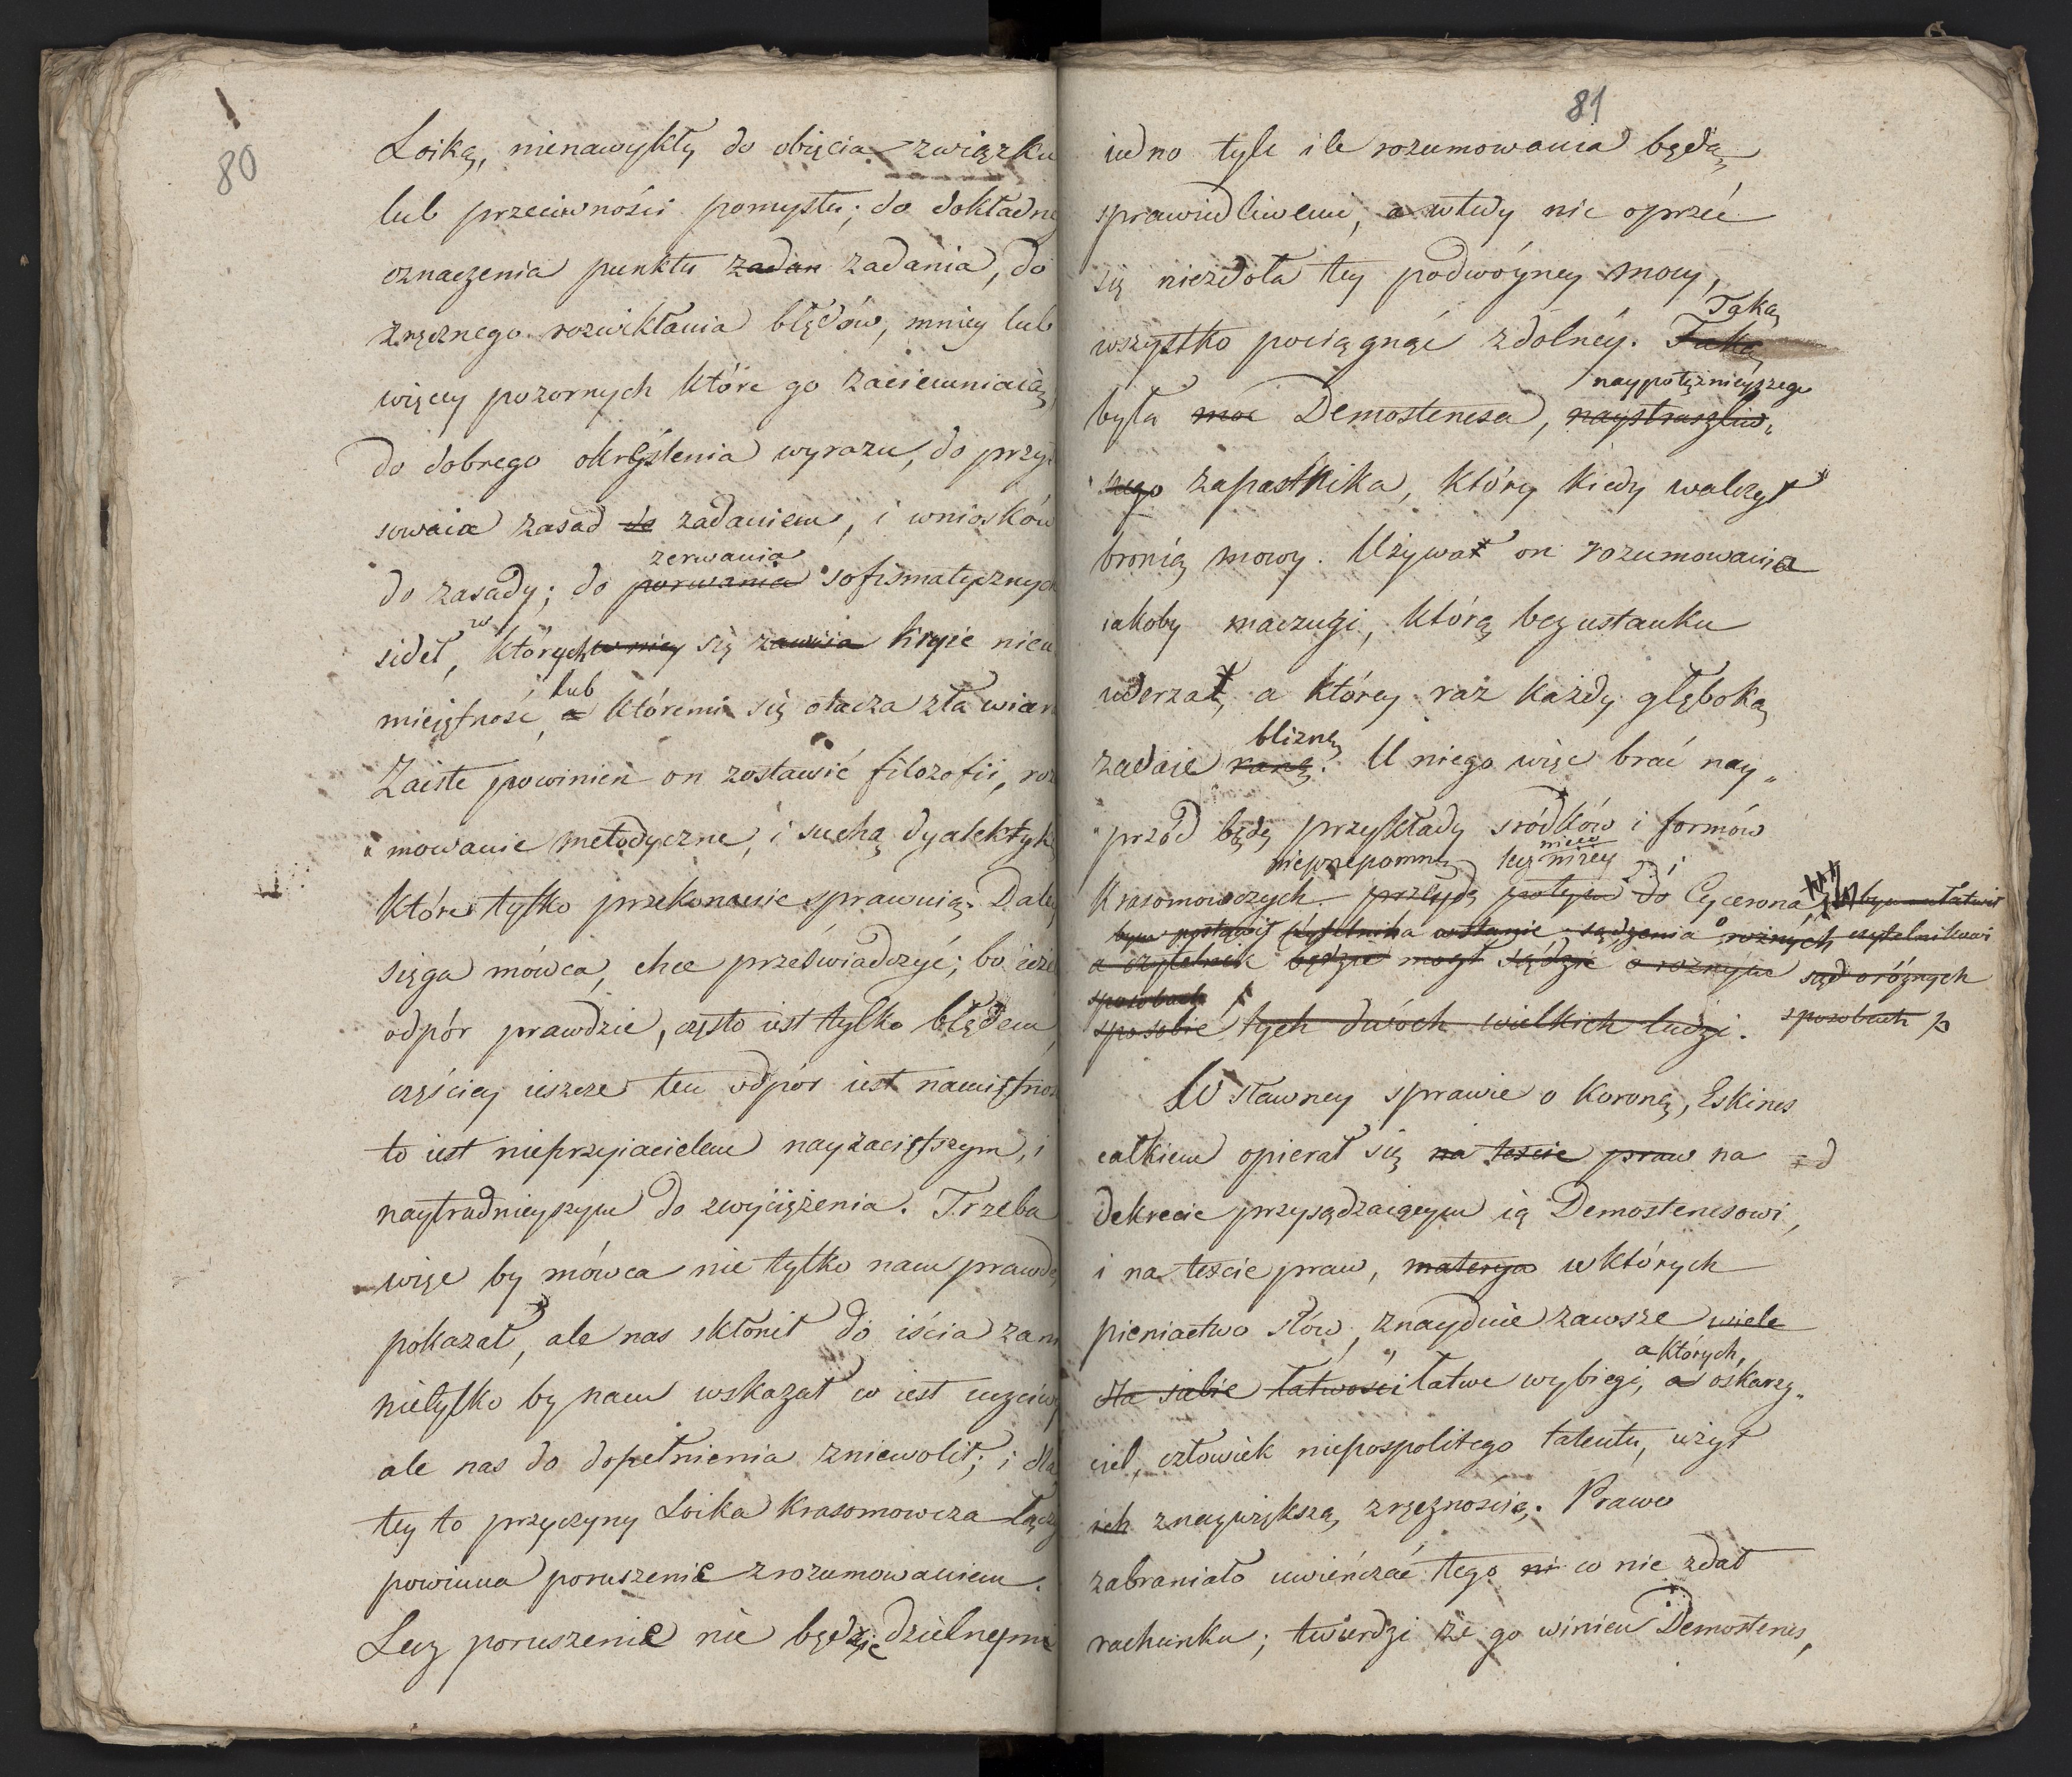 80
Loiką, nienawykły do obięcia związku
lub przeciwności pomysłu; do dokładne
oznaczenia punktu zadan zadania, do
zręcznego rozwikłania błędów, mniey lub
więcey pozornych które go zaciemniaią,
do dobrego określenia wyrazu, do przy
sowaia zasad do zadaniem, i wniosków
zerwania
do zasady; do porwania sofismatycznych
sideł, w których w niey się zawiia kryie nieu
lub
mieiętność, a któremi się otacza zła wiar
Zaiste powinien on zostawić filozofii, roz
mowanie metodyczne, i suchą dyalektykę
które tylko przekonanie sprawuią. Daley
sięga mówca, chce przeświadczyć; bo ieże
odpór prawdzie, często iest tylko błędem,
częściey ieszcze ten odpór iest namiętnoś
to iest nieprzyiacielem nayzaciętszym, i
naytrudnieyszym do zwyciężenia. Trzeba
więc by mówca nie tylko nam prawdę
pokazał, ale nas skłonił do iścia za ni
nietylko by nam wskazał co iest uczciwe
ale nas do dopełnienia zniewolił; i dla
tey to przyczyny Loika Krasomowcza łączy
powinna poruszenie z rozumowaniem.
Lecz poruszenie nie będzie dzielnymi
81
iedno tyle ile rozumowania będą
sprawiedliwemi, a wtedy nic oprzeć
się niezdoła tey podwóyney mocy,
Taką
wszystko pociągnąć zdolnéy. Taką
naypotężnieyszego
była moc Demostenesa, naystraszliw„
„szego zapastnika, który kiedy walczył
bronią mowy. Używał on rozumowania
iakoby maczugi, którą bez ustanku
uderzał, a którey raz każdy głęboką
bliznę
zadaie ranę. U niego więc brać nay„
„przód będę przykłady sródków i formów
nieprzepomnę lecz nieco niżey i
Krasomowczych. przeydę potym do Cycerona,
bym postawił czytelnika wstanie sądzenia o rożnych czytelnikowi
a czytelnik będzie mogł sądzić o rożnym sąd o różnych
sposobach
sposobie tych dwóch wielkich ludzi. sposobach
W sławney sprawie o koronę, Eskines
całkiem opierał się na teście praw na
dekrecie przysądzaiącym ią Demostenesowi,
i na teście praw, materya w których
pieniactwo słów, znayduie zawsze wiele
a których,
dla siebie łatwości łatwe wybiegi, a oskarży„
ciel, człowiek niepospolitego talentu, użył
ich znaywiększą zręcznością. Prawo
zabraniało uwieńczać tego ni co nie zdał
rachunku; twierdzi że go winien Demostenes,